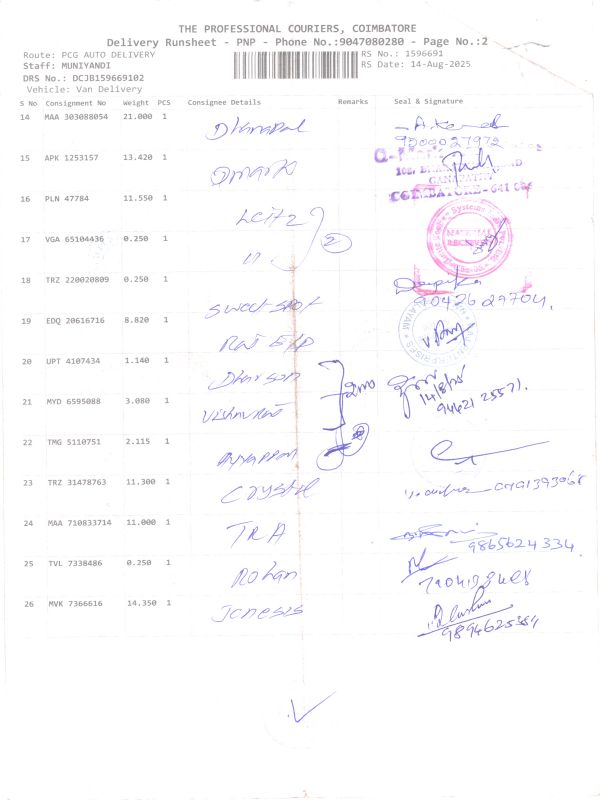 THE PROFESSIONAL COURIERS, COIMBATORE
Delivery Runsheet - PNP - Phone No.:9047080280 - Page No.:2
Route: PCG AUTO DELIVERY RS No.: 1596691
Staff: MUNIYANDI RS Date: 14-Aug-2025
DRS No.: DCJB159669102
Vehicle: Van Delivery
S No Consignment No Weight PCS Consignee Details Remarks Seal & Signature
14 MAA 303088054 21.000 1 Dhanapal
9509027972
15 APK 1253157 13.420 1
COIMBATORE - 641
16 PLN 47784 11.550 1
17 VGA 65104436 0.250 1 2
MATERIAL RECEIVED
18 TRZ 220020809 0.250 1 Sweet Spot Deepika
9042629704
19 EDQ 20616716 8.820 1
20 UPT 4107434 1.140 1 Dharson 14/8/25
21 MYD 6595088 3.080 1 94421 25571
22 TMG 5110751 2.115 1 Ayyappan
23 TRZ 31478763 11.300 1 Crystal
24 MAA 710833714 11.000 1 TRA
9865624334
25 TVL 7338486 0.250 1 Rohan
26 MVK 7366616 14.350 1 Jenesis
9894625384